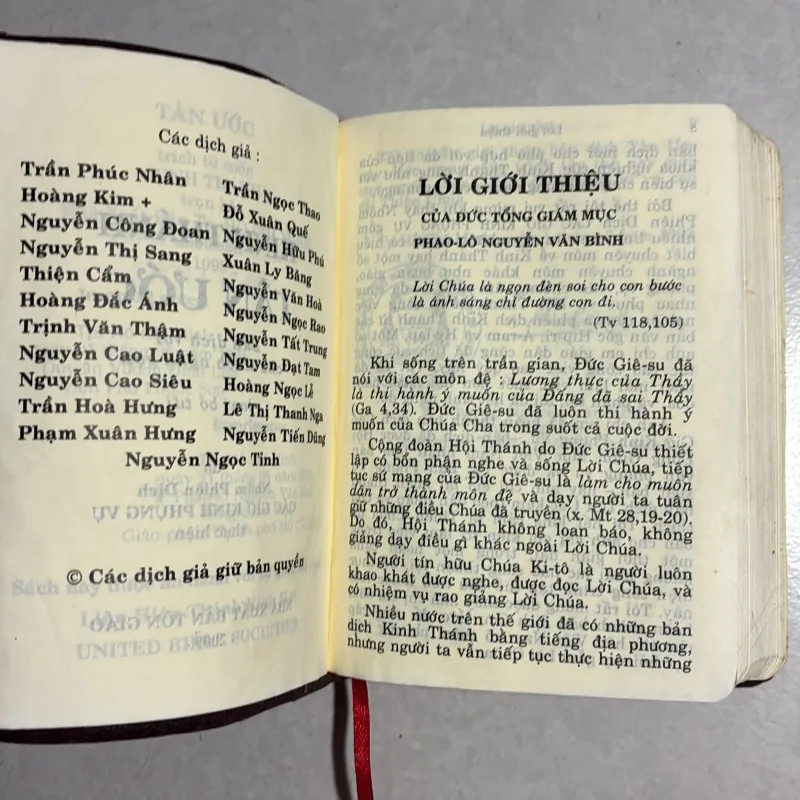 Các dịch giả :
Trần Phúc Nhân
Hoàng Kim +
Nguyễn Công Đoan
Nguyễn Thị Sang
Thiện Cẩm
Hoàng Đắc Ánh
Trịnh Văn Thậm
Nguyễn Cao Luật
Nguyễn Cao Siêu
Trần Hoà Hưng
Phạm Xuân Hưng
Trần Ngọc Thao
Đỗ Xuân Quế
Nguyễn Hữu Phú
Xuân Ly Băng
Nguyễn Văn Hoà
Nguyễn Ngọc Rao
Nguyễn Tất Trung
Nguyễn Đạt Tam
Hoàng Ngọc Lễ
Lê Thị Thanh Nga
Nguyễn Tiến Dũng
Nguyễn Ngọc Tỉnh
© Các dịch giả giữ bản quyền
LỜI GIỚI THIỆU
CỦA ĐỨC TỔNG GIÁM MỤC
PHAO-LÔ NGUYỄN VĂN BÌNH
Lời Chúa là ngọn đèn soi cho con bước
là ánh sáng chỉ đường con đi,
(Tv 118,105)
Khi sống trên trần gian, Đức Giê-su đã
nói với các môn đệ : Lương thực của Thầy
là thi hành ý muốn của Đấng đã sai Thầy
(Ga 4,34). Đức Giê-su đã luôn thi hành ý
muốn của Chúa Cha trong suốt cả cuộc đời.
Cộng đoàn Hội Thánh do Đức Giê-su thiết
lập có bổn phận nghe và sống Lời Chúa, tiếp
tục sứ mạng của Đức Giê-su là làm cho muôn
dân trở thành môn đệ và dạy người ta tuân
giữ những điều Chúa đã truyền (x. Mt 28,19-20).
Do đó, Hội Thánh không loan báo, không
giảng dạy điều gì khác ngoài Lời Chúa.
Người tín hữu Chúa Ki-tô là người luôn
khao khát được nghe, được đọc Lời Chúa, và
có nhiệm vụ rao giảng Lời Chúa.
Nhiều nước trên thế giới đã có những bản
dịch Kinh Thánh bằng tiếng địa phương,
nhưng người ta vẫn tiếp tục thực hiện những